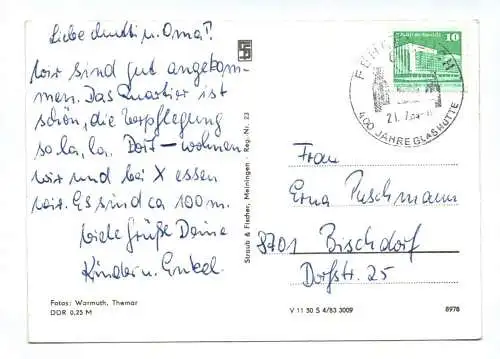 Liebe Mutti u. Oma!
Wir sind gut angekom-
men. Das Quartier ist
schön, die Verpflegung
so la, la. Dort – wohnen
wir und bei X essen
wir. Es sind ca 100 m.
Viele Grüße Deine
Kinder u. Enkel.
Fotos: Warmuth, Themar
DDR 0,25 M
Straub & Fischer, Meiningen · Reg. Nr. 23
10
400 JAHRE GLASHÜTTE
Frau
Erna Puschmann
8701 Bischdorf
Dorfstr. 25
V 11 30 S 4/83 3009
8978